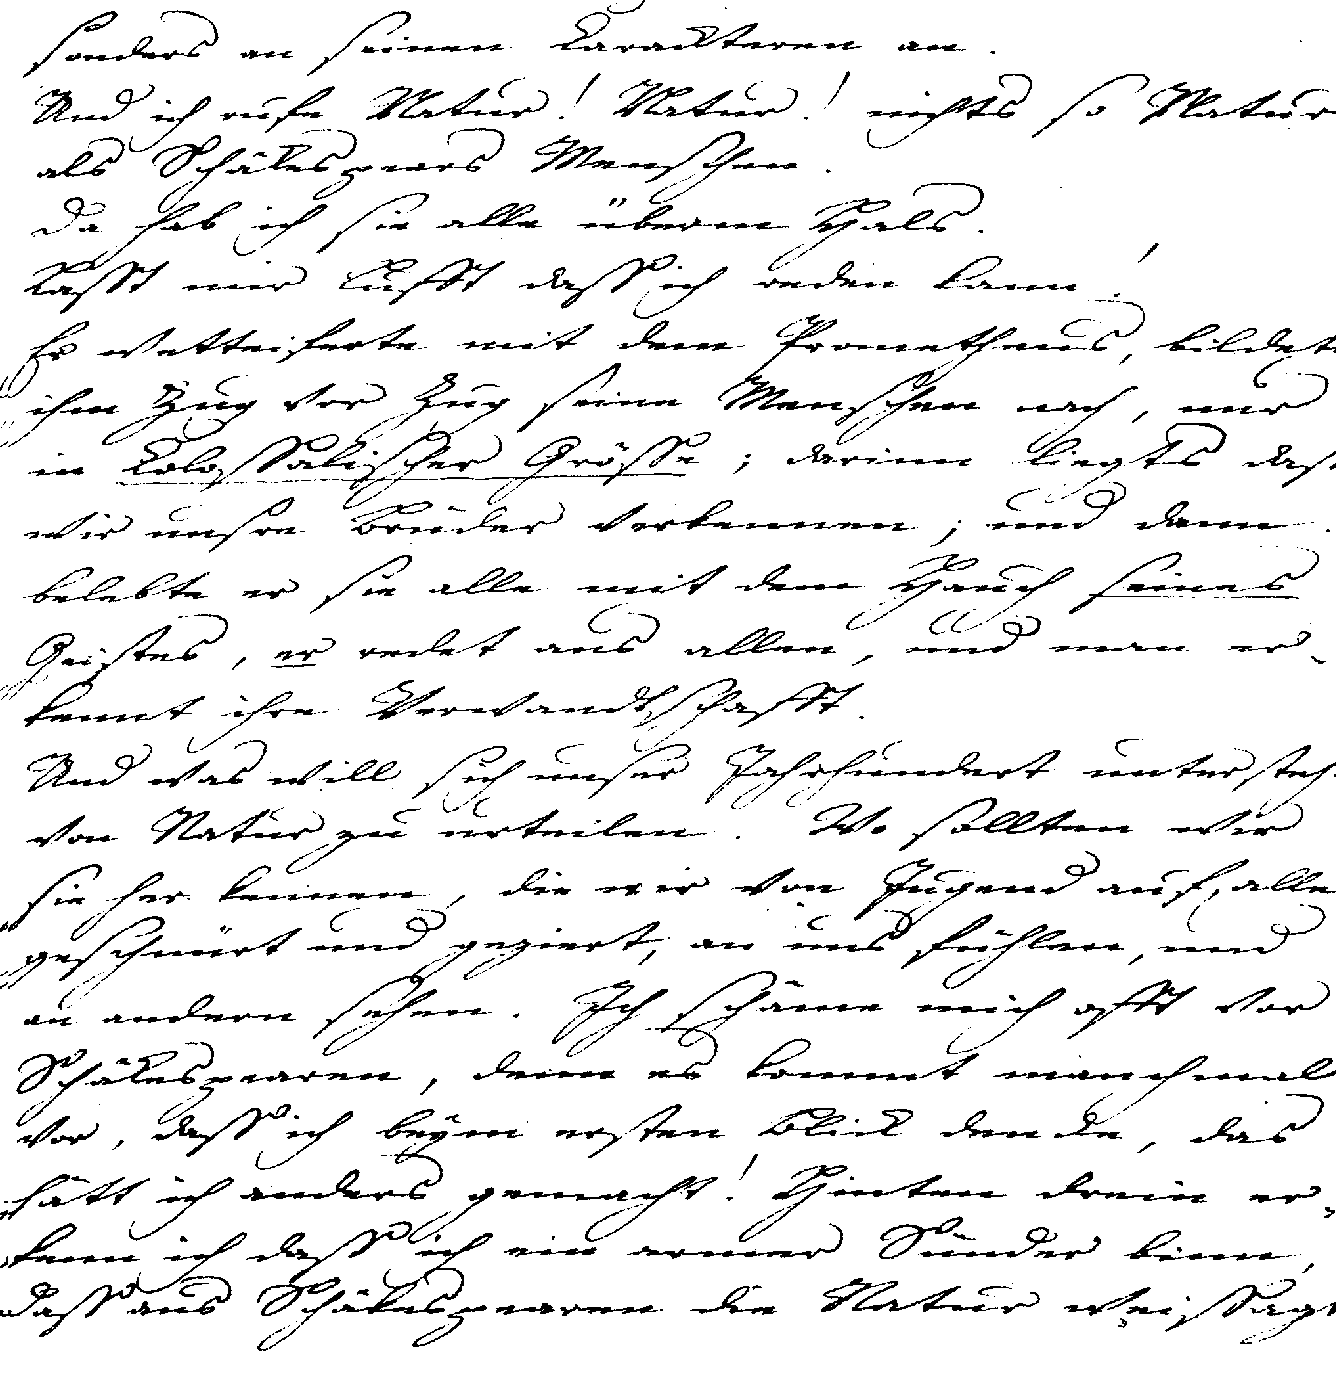 sonders an seinen Caracktteren an.
Und ich rufe Natur! Natur! nichts so Natur
als Schäkespears Menschen.
Da hab ich sie alle überm Hals.
Lasst mir Lufft dass ich reden kann!
Er wetteiferte mit dem Prometheus, bildete
ihm Zug vor Zug seine Menschen nach, nur
in Colossalischer Grösse; darinn liegts dass
wir unsre Brüder verkennen; und dann
belebte er sie alle mit dem Hauch seines
Geistes, er redet aus allen, und man er-
kennt ihre Verwandtschafft.
Und was will sich unser Jahrhundert untersteh
von Natur zu urteilen. Wo sollten wir
sie her kennen, die wir von Jugend auf, alles
geschnürt und geziert, an uns fühlen, und
an andern sehen. Ich schäme mich offt vor
Schäkespearen, denn es kommt manchmal
vor, dass ich beym ersten Blick dencke, das
hätt ich anders gemacht! Hinten drein er-
kenn ich dass ich ein armer Sünder binn,
dass aus Schäkespearen die Natur weissagt